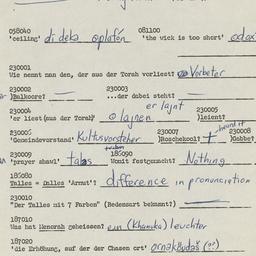 058040 081100
'ceiling' di deka oplafon 'the wick is too short'
230001
Wie nennt man den, der aus der Torah vorliest? Vorbeter
230002 230003
)Balkoore? ...der dabei steht?
230004 er lajnt 230005
'er liest (aus der Torah)' o lajnen )leient?
230006 230007 230008
'Gemeindevorstand' Kultusvorsteher )Roschekool? )Gabbe?
230009 186090
'prayer shawl' tales Womit festgemacht? Nothing
186080
Talles = Dalles 'Armut'? difference in pronunciation
230010
"Der Talles mit 7 Farben" (Bedeutung bekannt?)
187010
Was hat Menorah geheissen? ein (Khanuka) leuchter
187020
'die Erhöhung, auf der der Chasen ort'